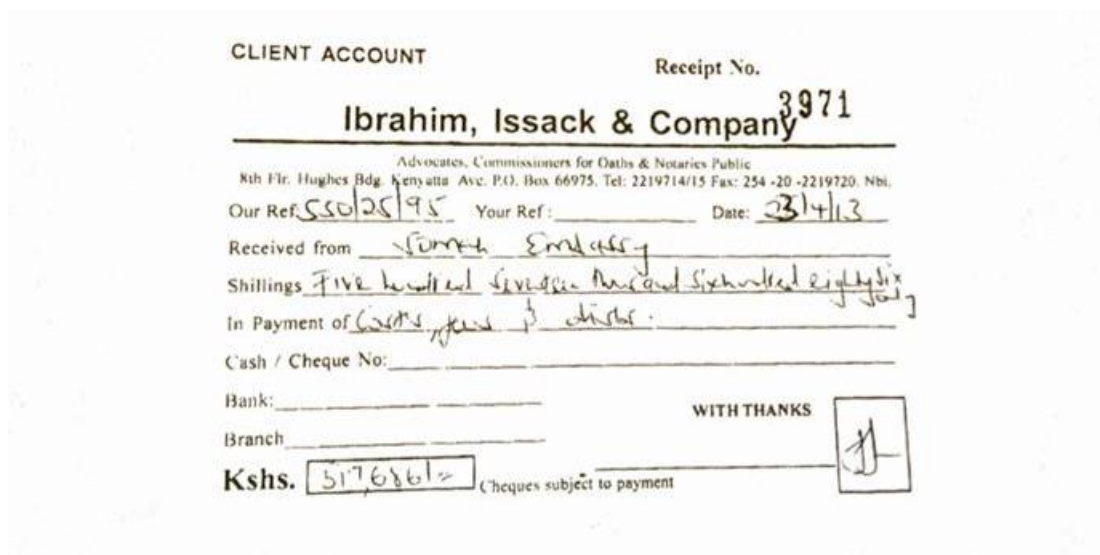 CLIENT ACCOUNT
Receipt No.
3971
Ibrahim, Issack & Company
Advocates, Commissioners for Oaths & Notaries Public
8th Flr. Hughes Bdg. Kenyatta Ave. P.O. Box 66975. Tel: 2219714/15 Fax: 254 -20 -2219720. Nbi.
Our Ref: 550/25/95 Your Ref : Date: 23/4/13
Received from Embassy
Shillings Five hundred Seventeen thousand Six hundred eighty six only
In Payment of Costs, fees & disbs.
Cash / Cheque No:
Bank:
WITH THANKS
Branch
Kshs. 517,686/= Cheques subject to payment